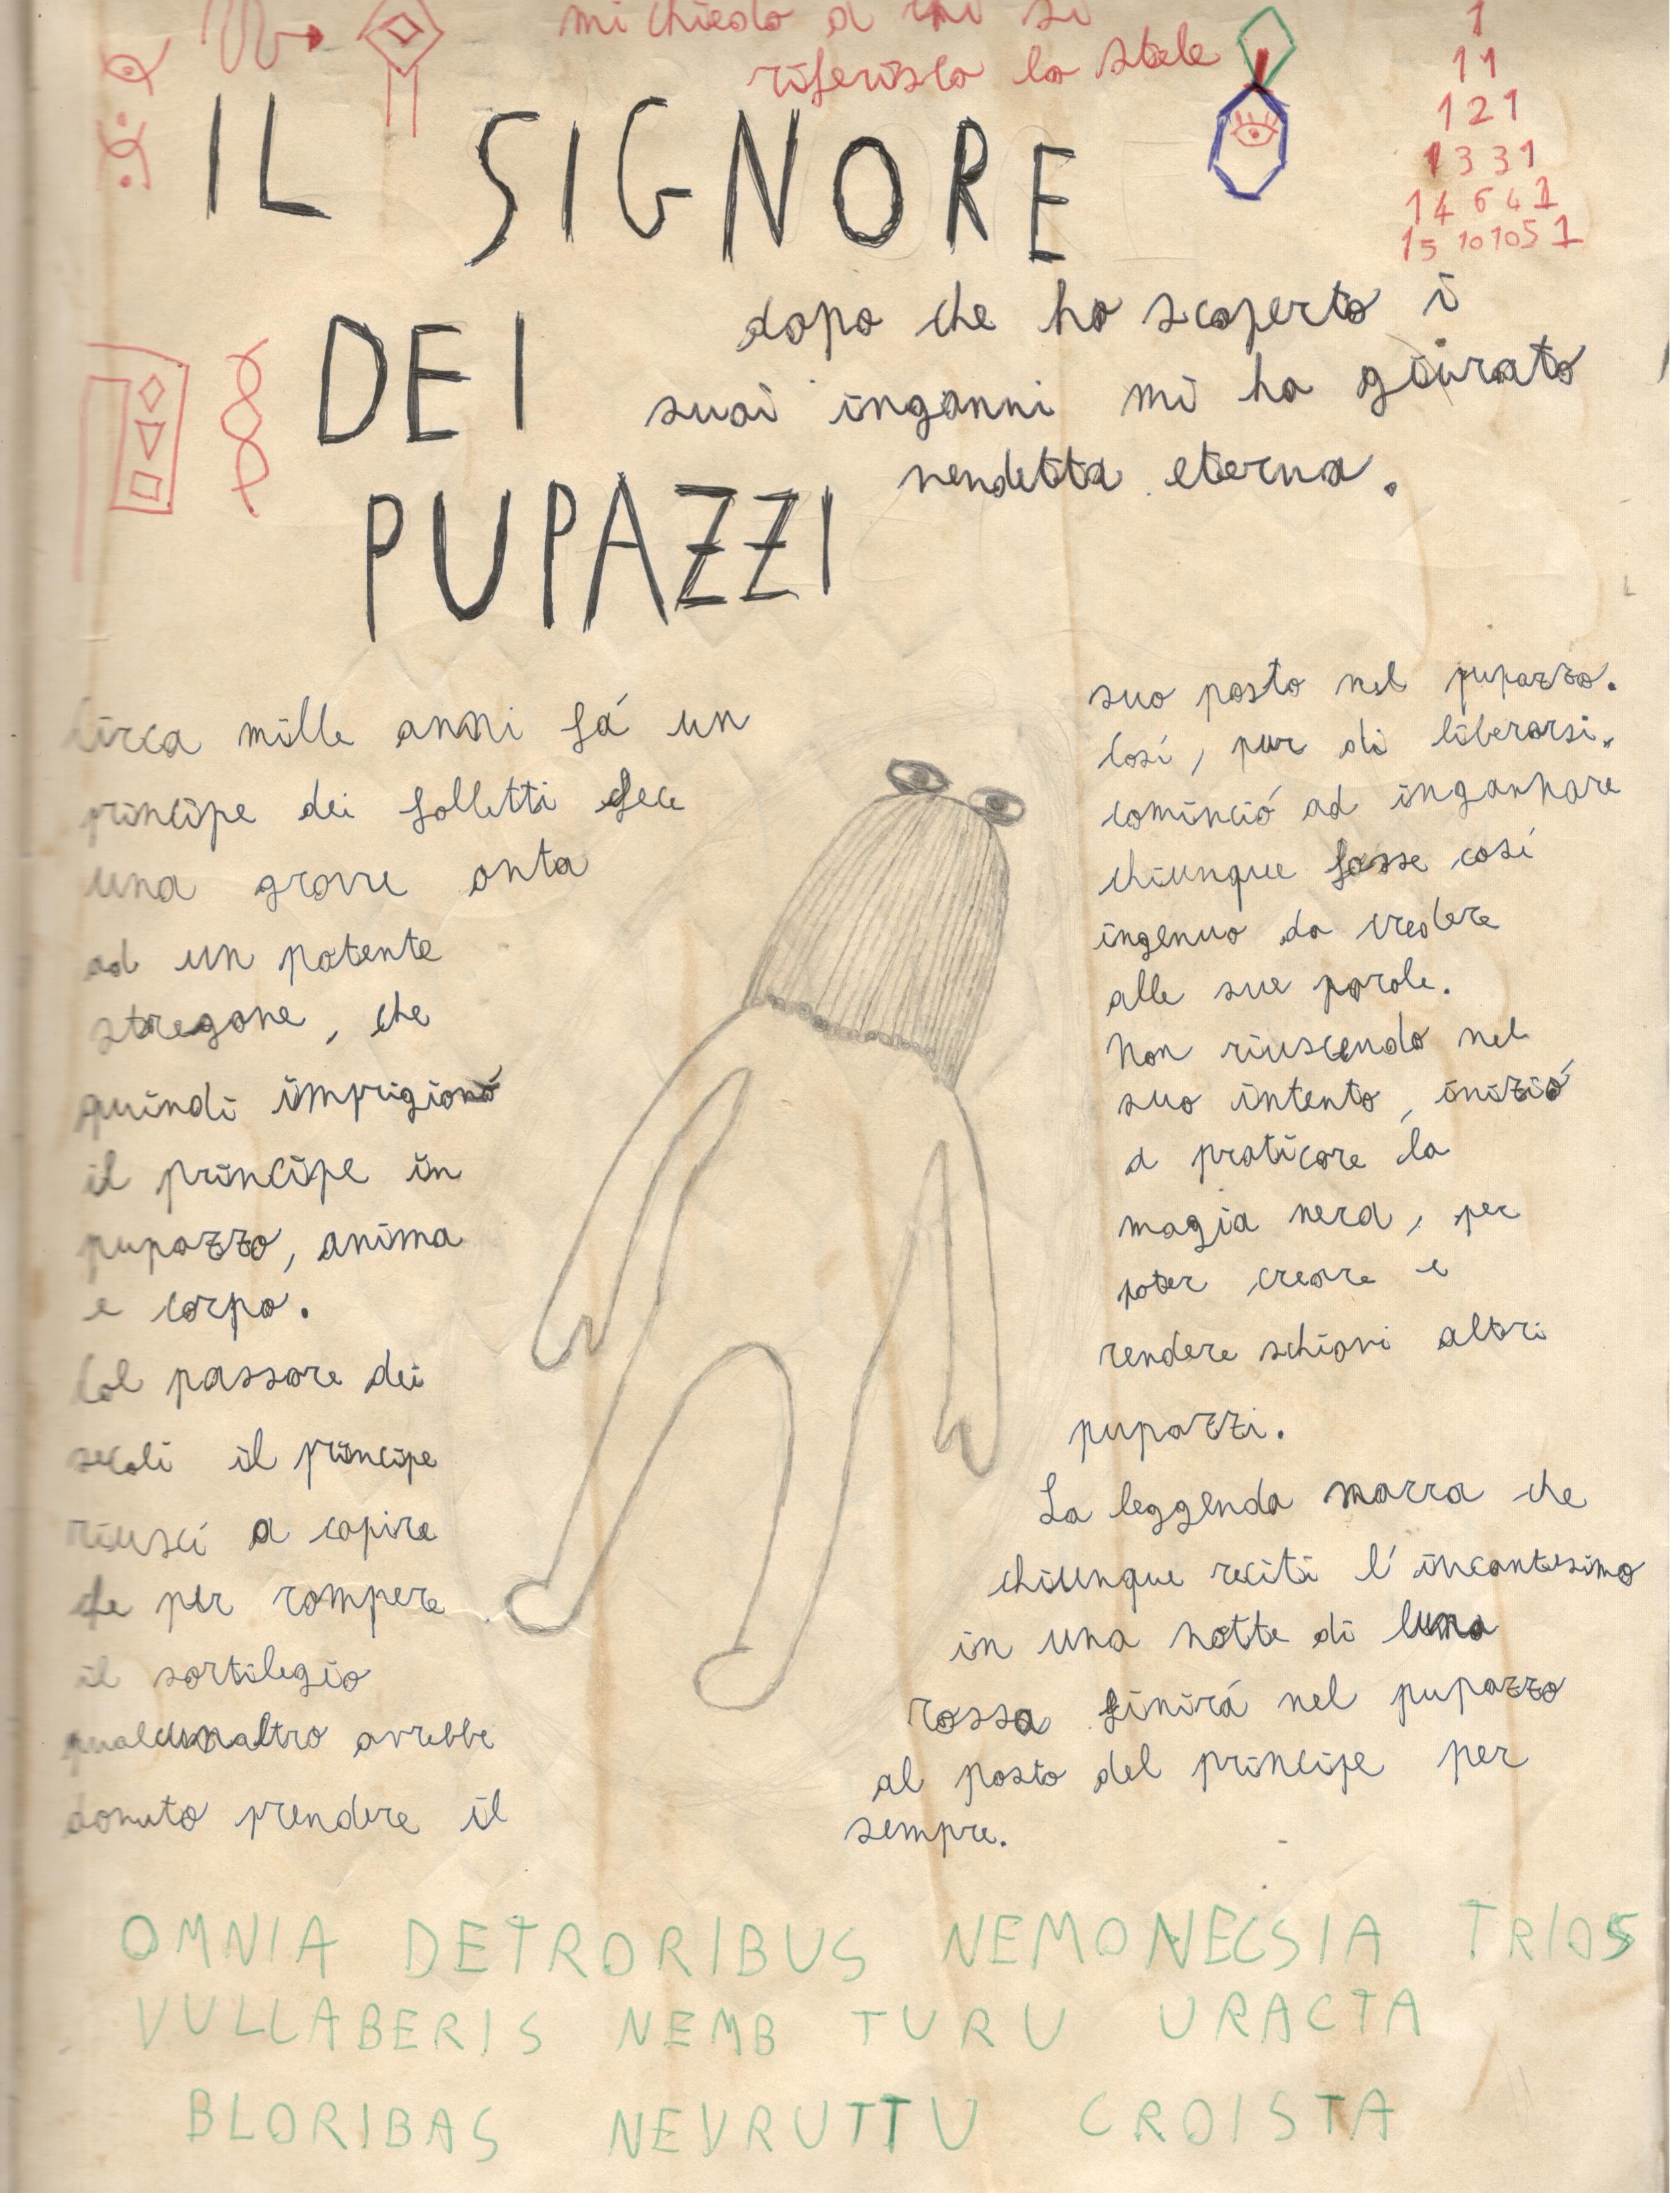 mi chiedo a chi si
riferisca la stele
1
11
121
1331
14641
15101051
IL SIGNORE
DEI
PUPAZZI
dopo che ho scoperto i
suoi inganni mi ha giurato
vendetta eterna.
Circa mille anni fá un
principe dei folletti fece
una grave onta
ad un potente
stregone, che
quindi imprigionó
il principe in
pupazzo, anima
e corpo.
Col passare dei
secoli il principe
riuscí a capire
che per rompere
il sortilegio
qualcunaltro avrebbe
dovuto prendere il
suo posto nel pupazzo.
Cosí, pur di liberarsi,
cominció ad ingannare
chiunque fosse cosí
ingenuo da credere
alle sue parole.
Non riuscendo nel
suo intento, inizió
a praticare la
magia nera, per
poter creare e
rendere schiavi altri
pupazzi.
La leggenda narra che
chiunque reciti l'incantesimo
in una notte di luna
rossa finirá nel pupazzo
al posto del principe per
sempre.
OMNIA DETRORIBUS NEMONECSIA TRIOS
VULLABERIS NEMB TURU URACTA
BLORIBAS NEVRUTTU CROISTA